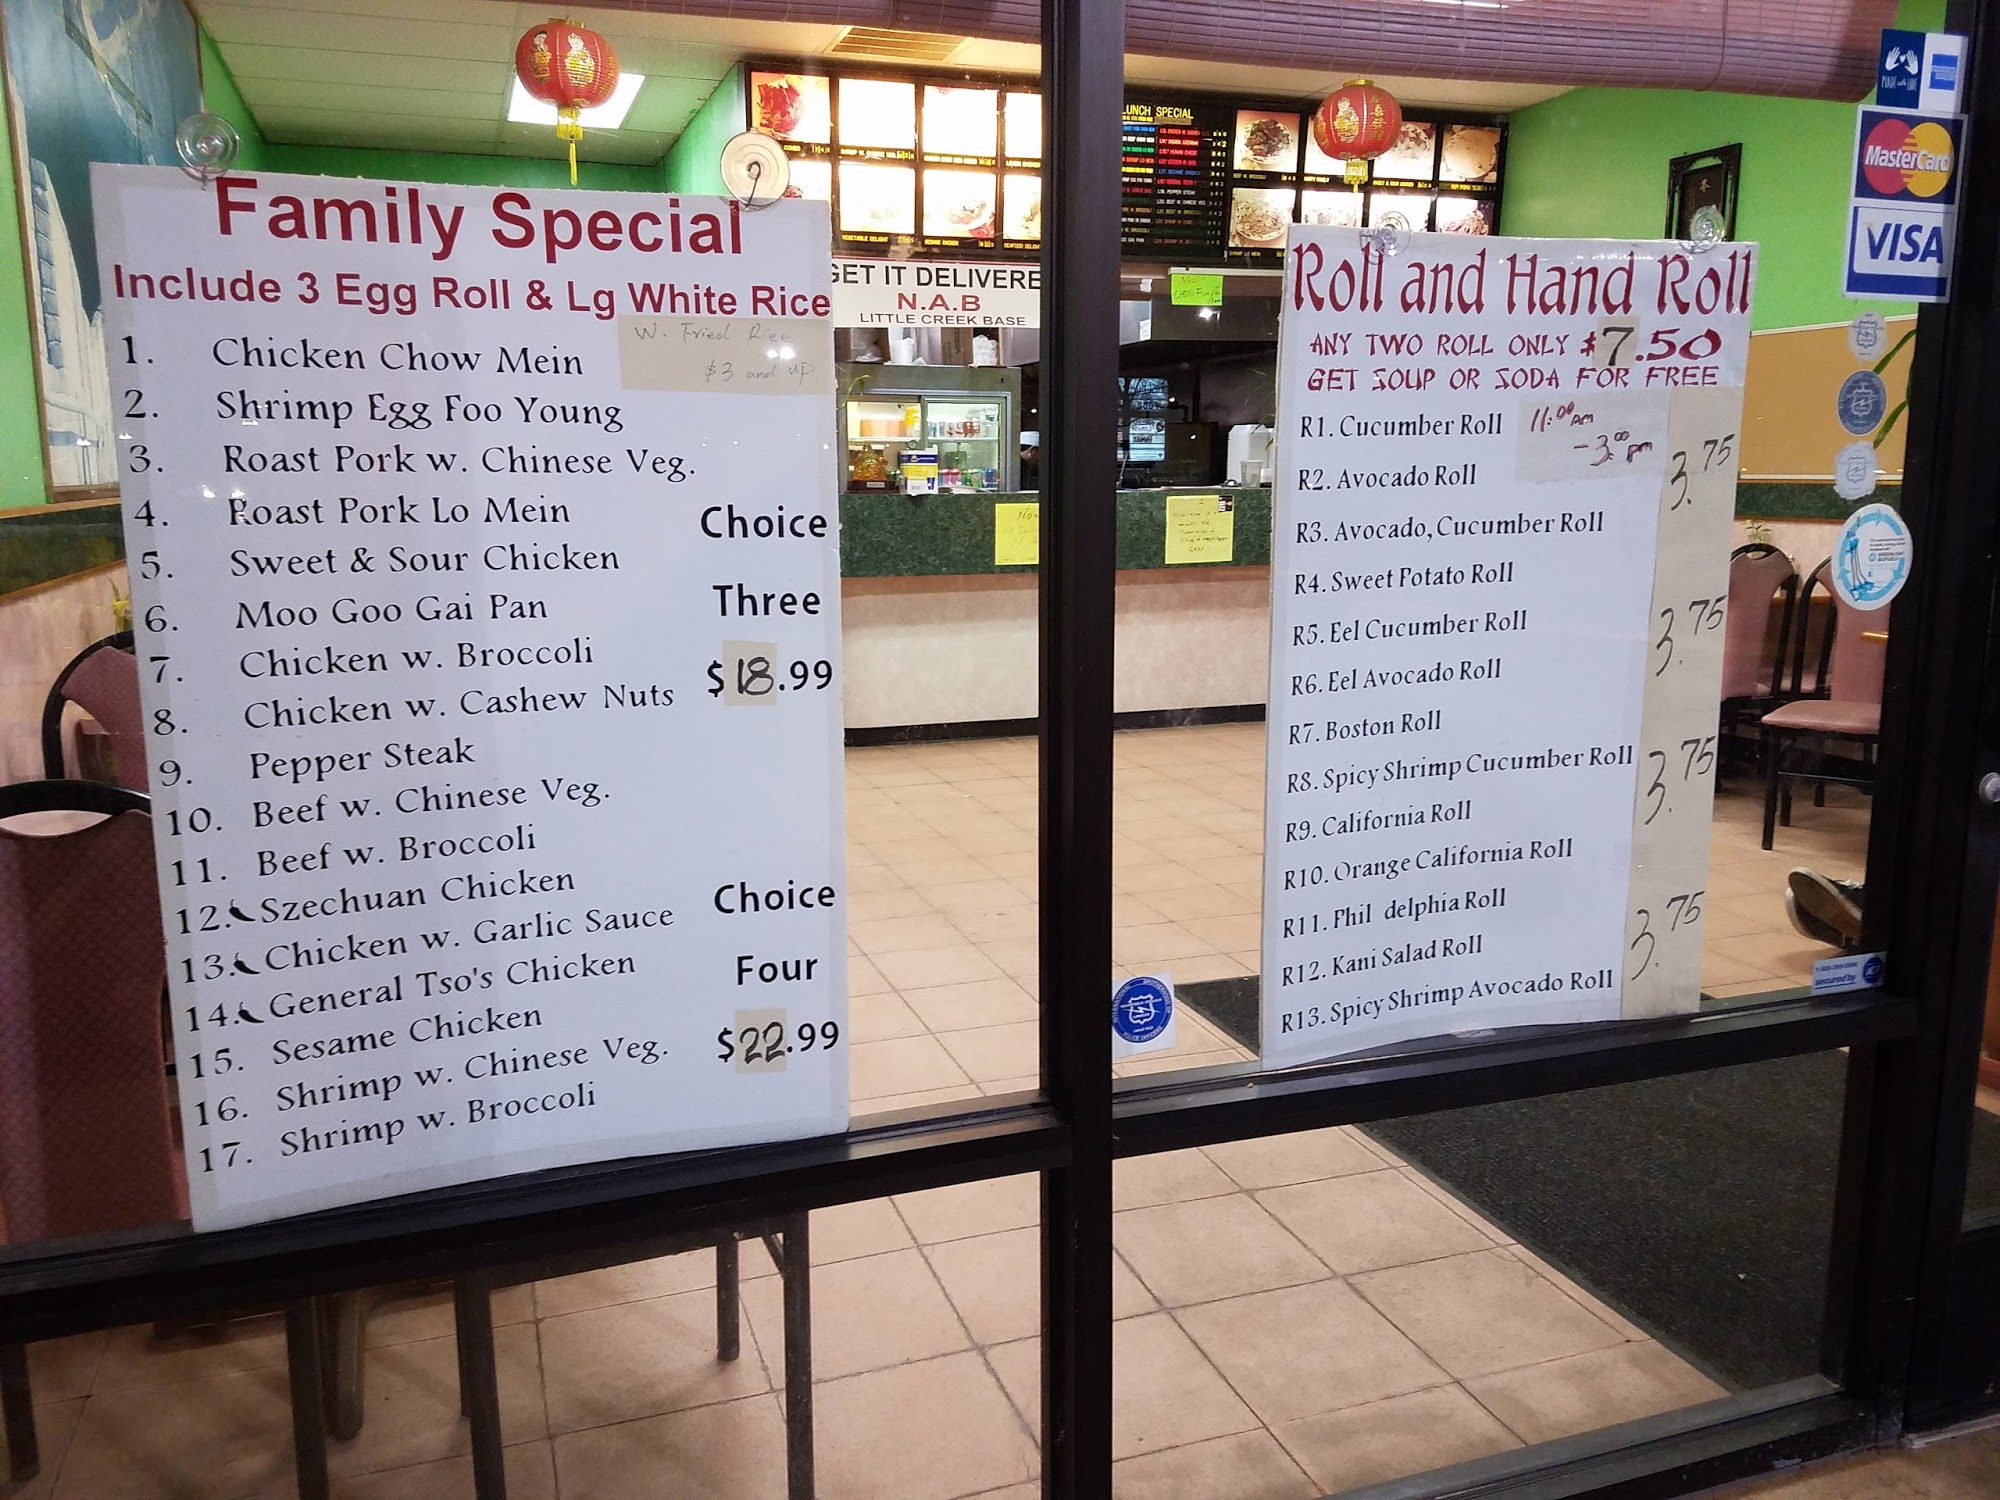 Family Special
Include 3 Egg Roll & Lg White Rice
W. Fried Rice
$3 and up.
1. Chicken Chow Mein
2. Shrimp Egg Foo Young
3. Roast Pork w. Chinese Veg.
4. Roast Pork Lo Mein
5. Sweet & Sour Chicken
6. Moo Goo Gai Pan
7. Chicken w. Broccoli
8. Chicken w. Cashew Nuts
9. Pepper Steak
10. Beef w. Chinese Veg.
11. Beef w. Broccoli
12. Szechuan Chicken
13. Chicken w. Garlic Sauce
14. General Tso's Chicken
15. Sesame Chicken
16. Shrimp w. Chinese Veg.
17. Shrimp w. Broccoli
Choice
Three
$18.99
Choice
Four
$22.99
GET IT DELIVERE
N.A.B
LITTLE CREEK BASE
LUNCH SPECIAL
Roll and Hand Roll
ANY TWO ROLL ONLY $7.50
GET SOUP OR SODA FOR FREE
11:00 AM
- 3:00 pm
R1. Cucumber Roll
R2. Avocado Roll
R3. Avocado, Cucumber Roll
R4. Sweet Potato Roll
R5. Eel Cucumber Roll
R6. Eel Avocado Roll
R7. Boston Roll
R8. Spicy Shrimp Cucumber Roll
R9. California Roll
R10. Orange California Roll
R11. Phil delphia Roll
R12. Kani Salad Roll
R13. Spicy Shrimp Avocado Roll
3.75
3.75
3.75
3.75
MasterCard
VISA
secured by